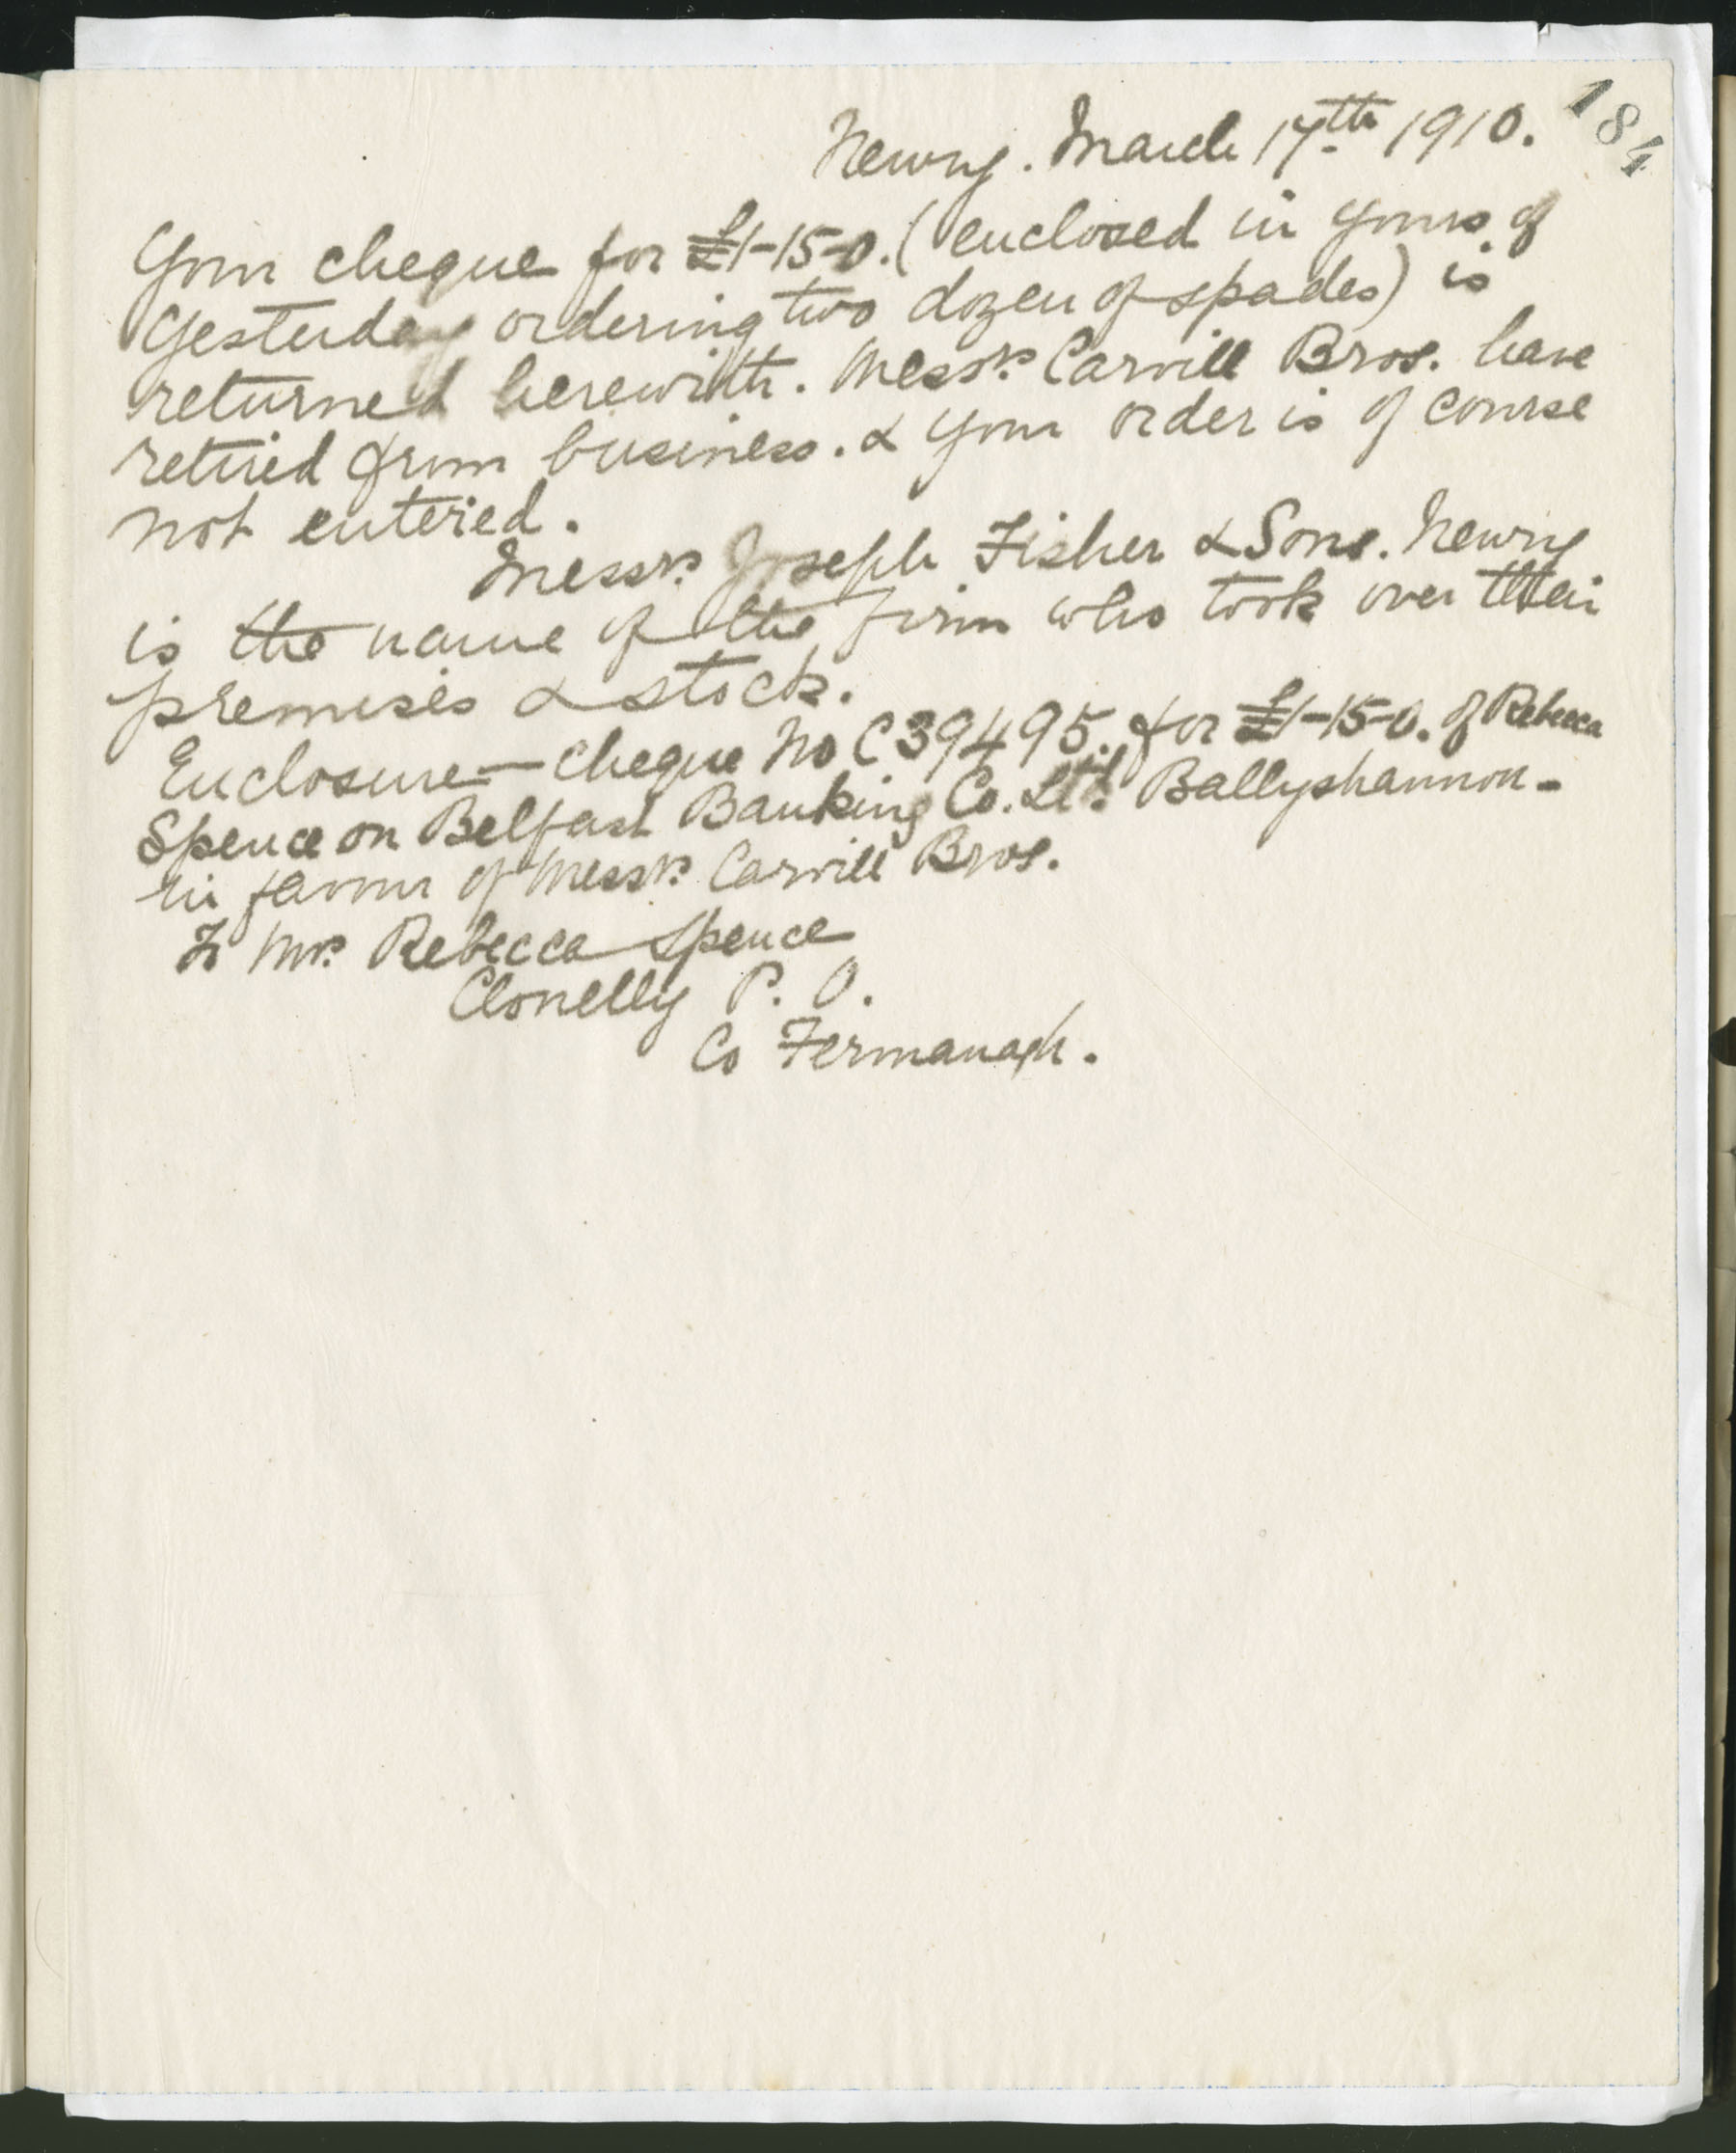 184
Newry. March 17th 1910.
Your cheque for £1-15-0. (enclosed in yours of
Yesterday ordering two dozen of spades) is
returned herewith. Messrs. Carvill Bros. have
retired from business. & your order is of course
not entered.
Messrs. Joseph Fisher & Sons. Newry
is the name of the firm who took over their
premises & stock.
Enclosure - cheque No C39495. for £1-15-0. of Rebecca
Spence on Belfast Banking Co. Ltd. Ballyshannon -
in favour of Messrs. Carvill Bros.
To Mrs. Rebecca Spence
Clonelly P. O.
Co Fermanagh.